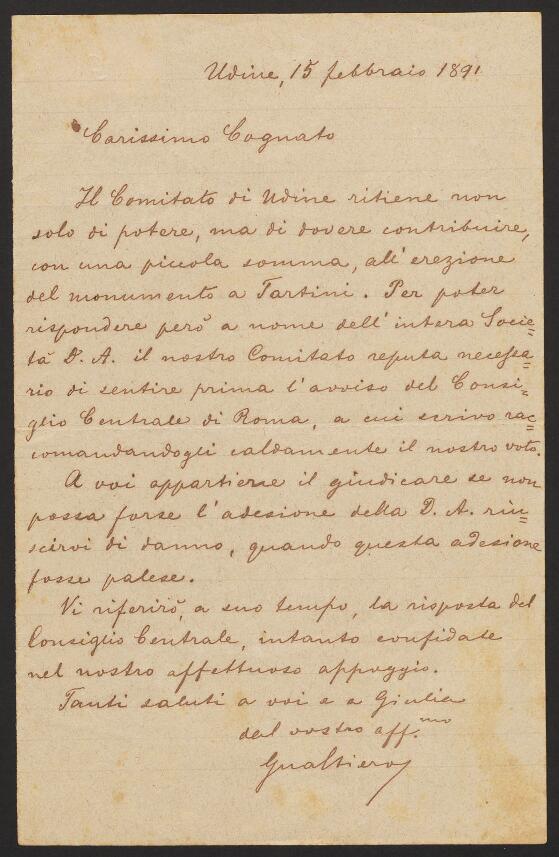 Udine, 15 febbraio 1891
Carissimo Cognato
Il Comitato di Udine ritiene non
solo di potere, ma di dovere contribuire,
con una piccola somma, all'erezione
del monumento a Tartini. Per poter
rispondere però a nome dell'intera Socie=
tà D. A. il nostro Comitato reputa necessa=
rio di sentire prima l'avviso del Consi=
glio Centrale di Roma, a cui scrivo rac=
comandandogli caldamente il nostro voto.
A voi appartiene il giudicare se non
possa forse l'adesione della D. A. riu=
scirvi di danno, quando questa adesione
fosse palese.
Vi riferirò, a suo tempo, la risposta del
Consiglio Centrale, intanto confidate
nel nostro affettuoso appoggio.
Tanti saluti a voi e a Giulia
dal vostro aff.mo
Gualtiero